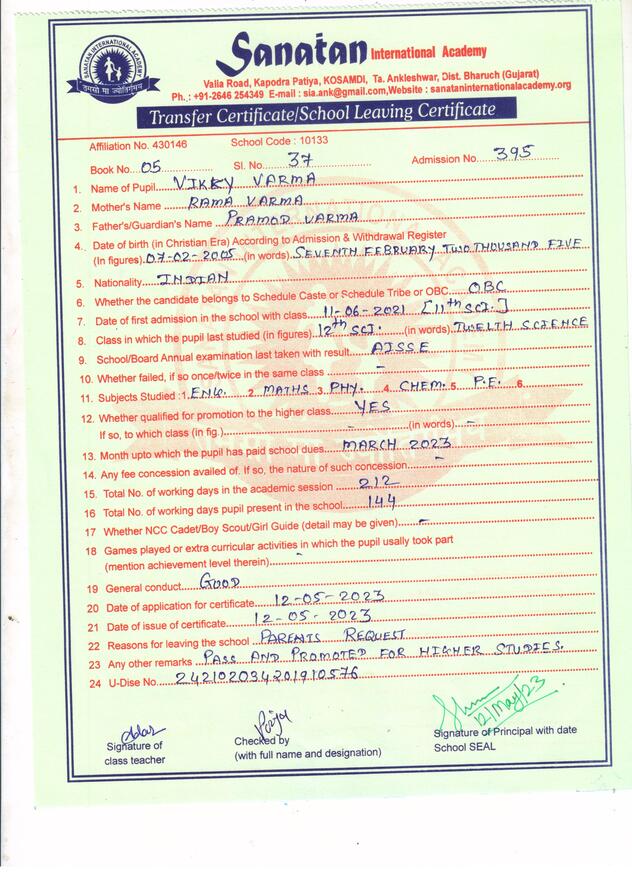 SANATAN INTERNATIONAL ACADEMY
तमसो मा ज्योतिर्गमय
Sanatan International Academy
Valia Road, Kapodra Patiya, KOSAMDI, Ta. Ankleshwar, Dist. Bharuch (Gujarat)
Ph.: +91-2646 254349 E-mail : sia.ank@gmail.com,Website : sanataninternationalacademy.org
Transfer Certificate/School Leaving Certificate
Affiliation No. 430146 School Code : 10133
Book No. 05 Sl. No. 37 Admission No. 395
1. Name of Pupil VIKKY VARMA
2. Mother's Name RAMA VARMA
3. Father's/Guardian's Name PRAMOD VARMA
4. Date of birth (in Christian Era) According to Admission & Withdrawal Register
(In figures) 07-02-2005 (in words) SEVENTH FEBRUARY TWO THOUSAND FIVE
5. Nationality INDIAN
6. Whether the candidate belongs to Schedule Caste or Schedule Tribe or OBC OBC
7. Date of first admission in the school with class 11-06-2021 [11th SCI.]
8. Class in which the pupil last studied (in figures) 12th SCI. (in words) TWELTH SCIENCE
9. School/Board Annual examination last taken with result AISSE
10. Whether failed, if so once/twice in the same class -
11. Subjects Studied :1. ENG. 2. MATHS 3. PHY. 4. CHEM. 5. P.E. 6.
12. Whether qualified for promotion to the higher class YES
If so, to which class (in fig.) - (in words) -
13. Month upto which the pupil has paid school dues MARCH 2023
14. Any fee concession availed of. If so, the nature of such concession -
15. Total No. of working days in the academic session 212
16 Total No. of working days pupil present in the school 144
17 Whether NCC Cadet/Boy Scout/Girl Guide (detail may be given) -
18 Games played or extra curricular activities in which the pupil usally took part
(mention achievement level therein) -
19 General conduct GOOD
20 Date of application for certificate 12-05-2023
21 Date of issue of certificate 12-05-2023
22 Reasons for leaving the school PARENTS REQUEST
23 Any other remarks PASS AND PROMOTED FOR HIGHER STUDIES.
24 U-Dise No. 242102034201910576
12/May/23
Signature of
class teacher
Checked by
(with full name and designation)
Signature of Principal with date
School SEAL